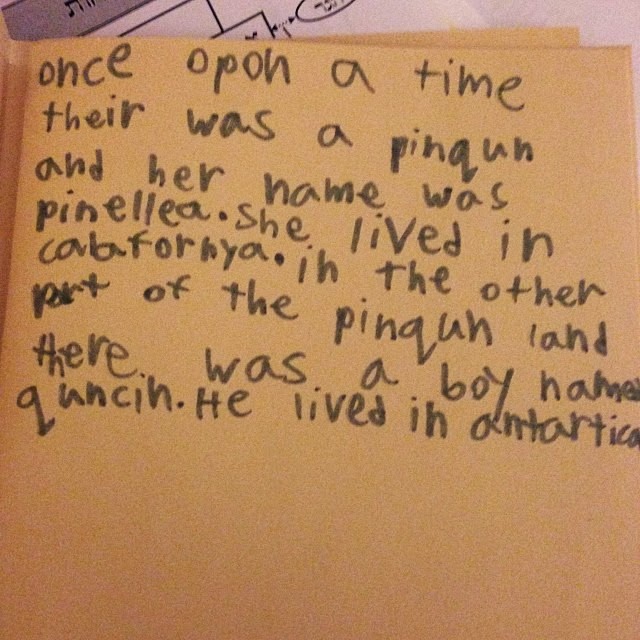 once opon a time
their was a pinqun
and her name was
pinellea. she lived in
calafornya. in the other
part of the pinqun land
there was a boy name
quncin. He lived in antartica